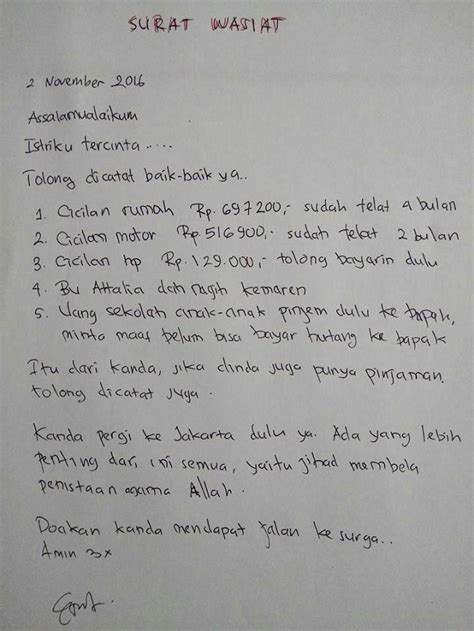 SURAT WASIAT
2 November 2016
Assalamualaikum
Istriku tercinta .....
Tolong dicatat baik-baik ya..
1. Cicilan rumah Rp. 697200,- sudah telat 4 bulan
2. Cicilan motor Rp 516900,- sudah telat 2 bulan
3. Cicilan hp Rp. 129.000,- tolong bayarin dulu
4. Bu Attalia dah nagih kemaren
5. Uang sekolah anak-anak pinjem dulu ke bapak,
minta maaf belum bisa bayar hutang ke bapak
Itu dari kanda, jika dinda juga punya pinjaman
tolong dicatat juga.
Kanda pergi ke Jakarta dulu ya. Ada yang lebih
penting dari ini semua, yaitu jihad membela
penistaan agama Allah.
Doakan kanda mendapat jalan ke surga..
Amin 3x